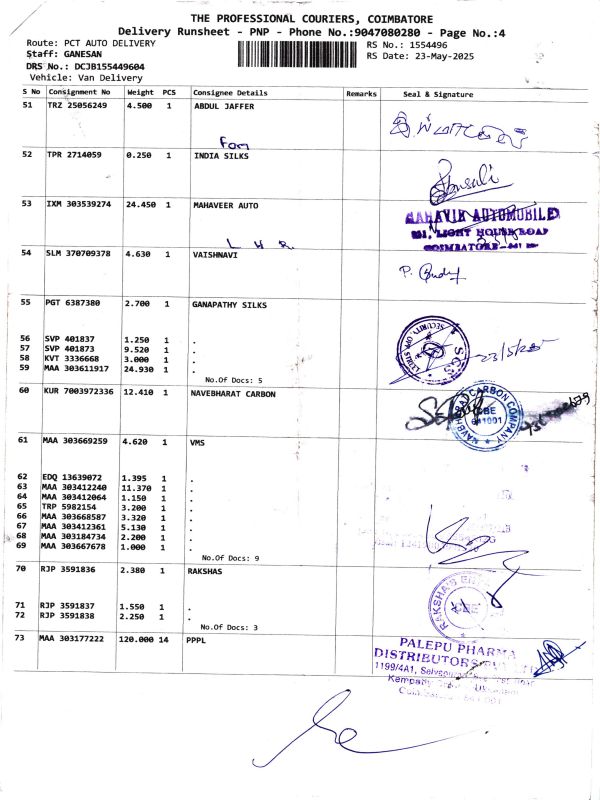 THE PROFESSIONAL COURIERS, COIMBATORE
Delivery Runsheet - PNP - Phone No.:9047080280 - Page No.:4
Route: PCT AUTO DELIVERY
RS No.: 1554496
Staff: GANESAN
RS Date: 23-May-2025
DRS No.: DCJB155449604
Vehicle: Van Delivery
S No Consignment No Weight PCS Consignee Details Remarks Seal & Signature
51 TRZ 25056249 4.500 1 ABDUL JAFFER
For
52 TPR 2714059 0.250 1 INDIA SILKS
53 IXM 303539274 24.450 1 MAHAVEER AUTO
MAHAVIR AUTOMOBILE
LIGHT HOUSE ROAD
COIMBATORE
L H R.
54 SLM 370709378 4.630 1 VAISHNAVI
55 PGT 6387380 2.700 1 GANAPATHY SILKS
SECURITY, OPP. STREET
SCS
23/5/25
56 SVP 401837 1.250 1 .
57 SVP 401873 9.520 1 .
58 KVT 3336668 3.000 1 .
59 MAA 303611917 24.930 1 .
No.Of Docs: 5
60 KUR 7003972336 12.410 1 NAVEBHARAT CARBON
NAVBHARAT CARBON COMPANY
CBE
641001
61 MAA 303669259 4.620 1 VMS
62 EDQ 13639072 1.395 1 .
63 MAA 303412240 11.370 1 .
64 MAA 303412064 1.150 1 .
65 TRP 5982154 3.200 1 .
66 MAA 303668587 3.320 1 .
67 MAA 303412361 5.130 1 .
68 MAA 303184734 2.200 1 .
69 MAA 303667678 1.000 1 .
No.Of Docs: 9
70 RJP 3591836 2.380 1 RAKSHAS
RAKSHA'S
CBE
71 RJP 3591837 1.550 1 .
72 RJP 3591838 2.250 1 .
No.Of Docs: 3
73 MAA 303177222 120.000 14 PPPL
PALEPU PHARMA
DISTRIBUTORS
1199/4A1,